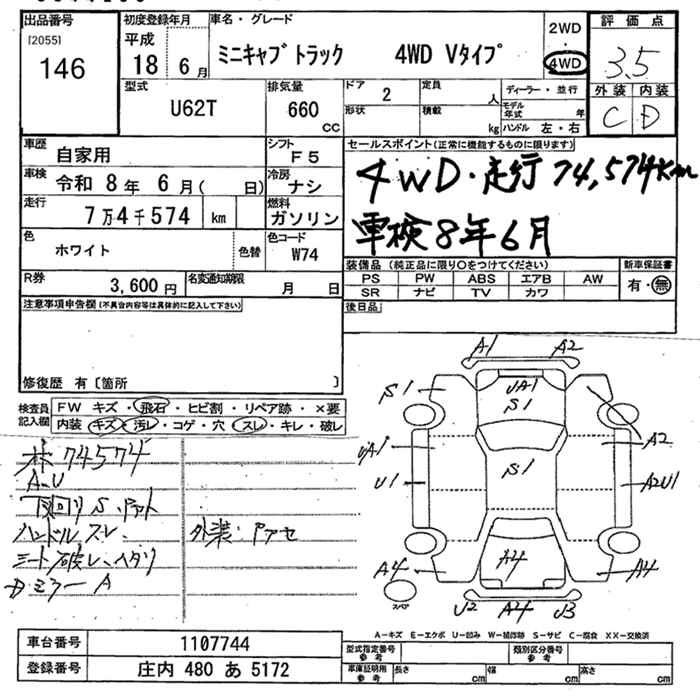 出品番号 初度登録年月 車名・グレード 2WD ・ 4WD 評価点
[2055] 146 平成 18 6月 ミニキャブトラック 4WD Vタイプ 3.5
型式 U62T 排気量 660 CC ドア 2 定員 人 ディーラー・並行 外装 内装
形状 積載 kg モデル年式 年 ハンドル 左・右 C D
車歴 自家用 シフト F5 セールスポイント(正常に機能するものに限ります)
車検 令和 8年 6月( 日) 冷房 ナシ 4WD・走行 74,574Km
走行 7万4千574 km 燃料 ガソリン 車検8年6月
色 ホワイト 色替 色コード W74
装備品(純正品に限り○をつけてください) 新車保証書
R券 3,600円 名変通知期限 月 日 PS PW ABS エアB AW 有・無
SR ナビ TV カワ
注意事項申告欄(不具合内容等は具体的に記入して下さい) 後日品
修復歴 有〔箇所 〕
検査員記入欄 FW キズ・飛石・ヒビ割・リペア跡・×要
内装・キズ・汚レ・コゲ・穴・スレ・キレ・破レ
74574
A.U
下回り S.
ハンドル スレ、 外装:
シート破レ、ヘタリ
ミラー A
A1 A2
S1 UA1 S1
UA1 A2
U1 S1 A2U1
A4 A4 A4
スペア U2 A4 U3
A−キズ E−エクボ U−凹み W−補修跡 S−サビ C−腐食 XX−交換済
車台番号 1107744 型式指定番号 参考 類別区分番号 参考
登録番号 庄内 480 あ 5172 車庫証明用 参考 長さ cm 幅 cm 高さ cm